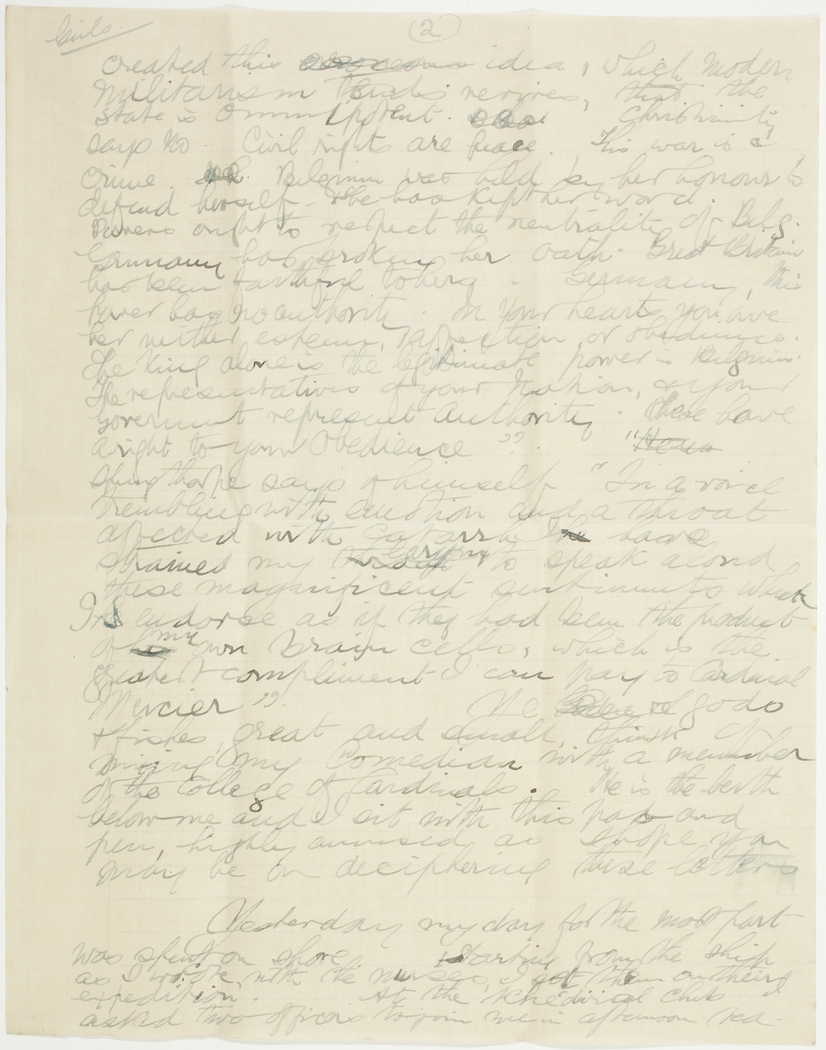 Girls.
(2)
created this idea, which modern
Militarism revives, that the
State is Omnipotent. Christianity
says No. Civil rights are peace. This war is a
crime. Belgium was held by her honour to
defend herself. She has kept her word.
Powers ought to respect the neutrality of Belg.
Germany has broken her oath. Great Britain
has been faithful to hers. Germany, this
power has no authority. In your hearts you owe
her neither esteem, affection, or obedience.
The King alone is the legitimate power in Belgium.
The representatives of your Nation, & your
Government represent authority. These have
a right to your Obedience"
says of himself "In a voice
trembling with emotion and a throat
affected with Catarrh I have
strained my larynx to speak aloud
these magnificent sentiments which
I endorse as if they had been the product
of my own brain cells, which is the
greatest compliment I can pay to Cardinal
Mercier". Ye gods
& fishes, great and small, think of
mixing my Comedian with a member
of the College of Cardinals. He is the berth
below me and I sit with this pad and
pen, highly amused as I hope you
may be on deciphering these letters
Yesterday my day for the most part
was spent on shore. Starting from the ship
as I wrote, with the nurses, I set them on their
expedition. At the Khedivial club I
asked two officers to join me in afternoon tea.